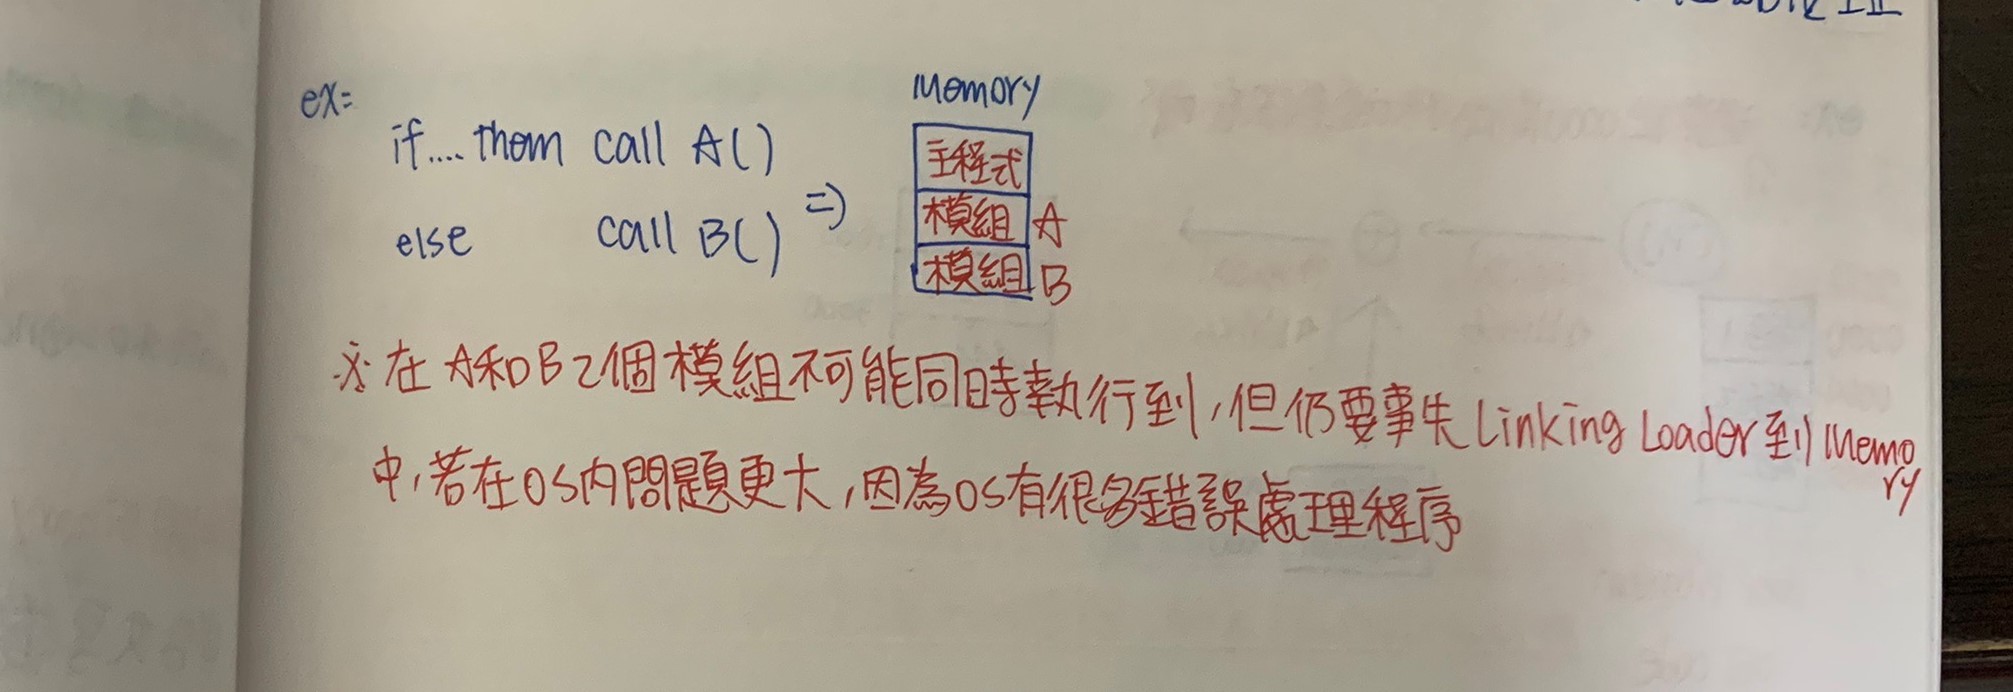 ex=
Memory
if.... then call A()
else call B() =>
主程式
模組 A
模組 B
※ 在A和B2個模組不可能同時執行到,但仍要事失Linking Loader到Memo
ry
中,若在OS內問題更大,因為OS有很多錯誤處理程序